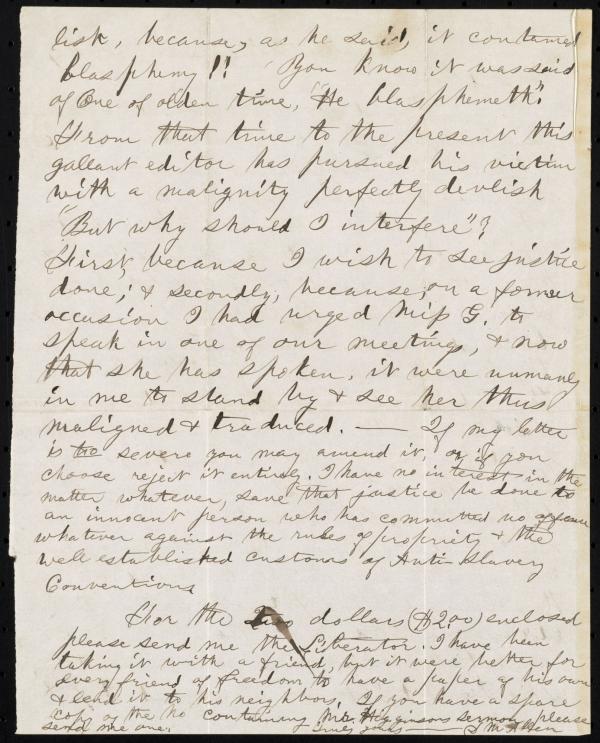 lish, because, as he said, it contained
blasphemy!! You know it was said
of One of olden time, "He blasphemeth".
From that time to the present this
gallant editor has pursued his victim
with a malignity perfectly devlish
"But why should I interfere"?
First, because I wish to see justice
done; & secondly, because, on a former
occasion I had urged Miss G. to
speak in one of our meetings, & now
that she has spoken, it were unmanly
in me to stand by & see her thus
maligned & traduced. — If my letter
is too severe you may amend it, or if you
choose reject it entirely. I have no interest in the
matter whatever, save that justice be done to
an innocent person who has committed no offence
whatever against the rules of propriety & the
well established customs of Anti-Slavery
Conventions.
For the Two dollars ($2.00) enclosed
please send me the Liberator. I have been
taking it with a friend, but it were better for
every friend of freedom to have a paper of his own
& lend it to his neighbors. If you have a spare
copy of the No containing Mr. Higginson's sermon, please
send me one. Truly yours —